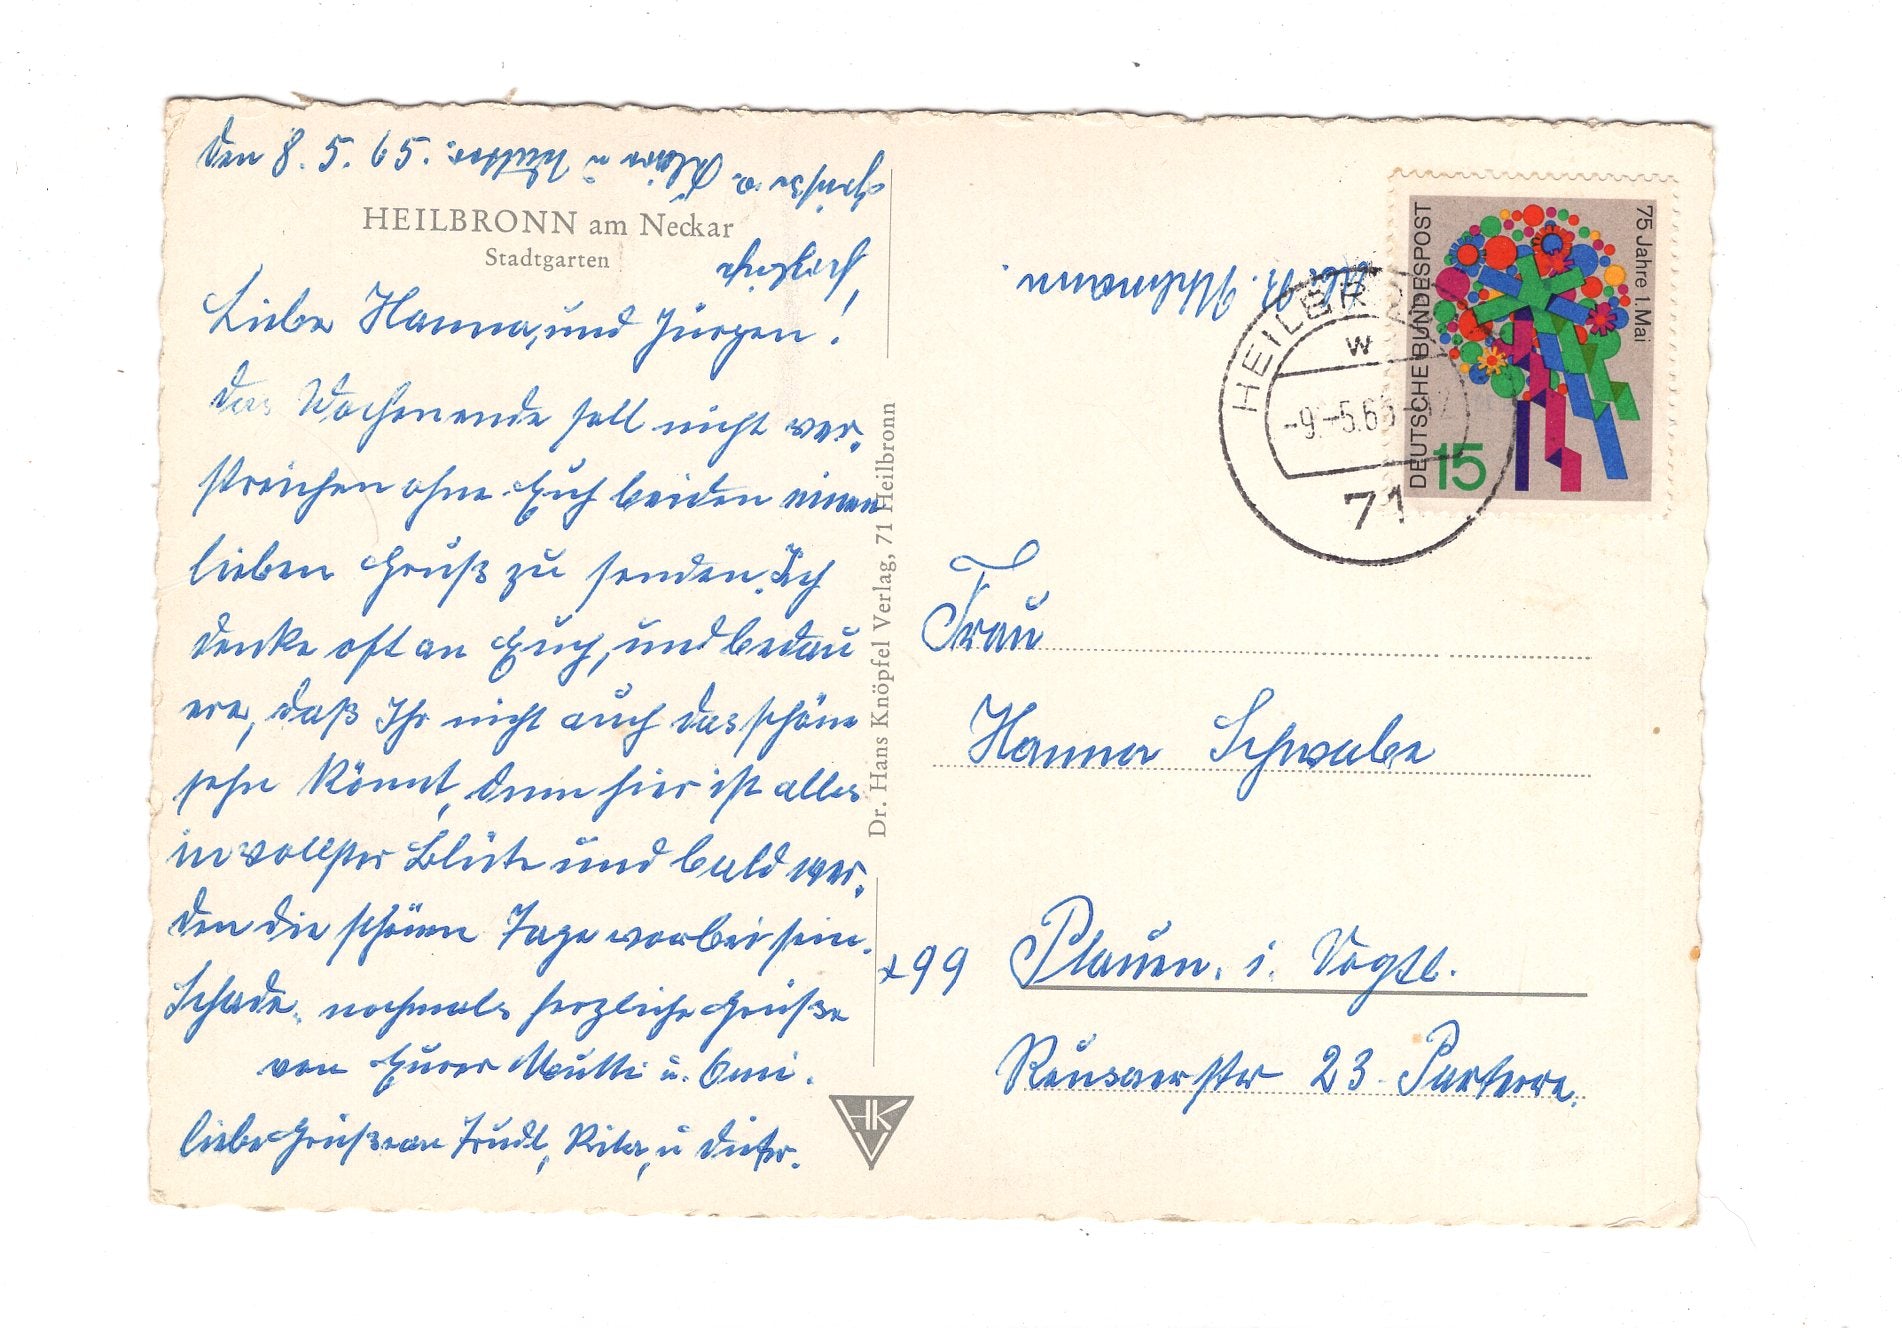 den 8. 5. 65.
HEILBRONN am Neckar
Stadtgarten
Liebe Hanna, und Jürgen!
Das Wochenende soll nicht ver-
streichen ohne Euch beiden einen
lieben Gruß zu senden. Ich
denke oft an Euch, und bedau
ere, daß Ihr nicht auch das schöne
sehn könnt, denn hier ist alles
in vollster Blüte und bald wer-
den die schönen Tage vorbei sein.
Schade. nochmals herzliche Grüße
von Eurer Mutti u. Omi.
liebe Grüße von Trudl, Rita, u Dieter.
Grüße a. Klara u Mutter.
herzlich!
Dr. Hans Knöpfel Verlag, 71 Heilbronn
HKV
HEILBRONN
W
-9.-5.65-
71
DEUTSCHE BUNDESPOST
75 Jahre 1. Mai
15
Frau
Hanna Schwabe
x99 Plauen. i. Vogtl.
Reusaerstr 23 Parterre.